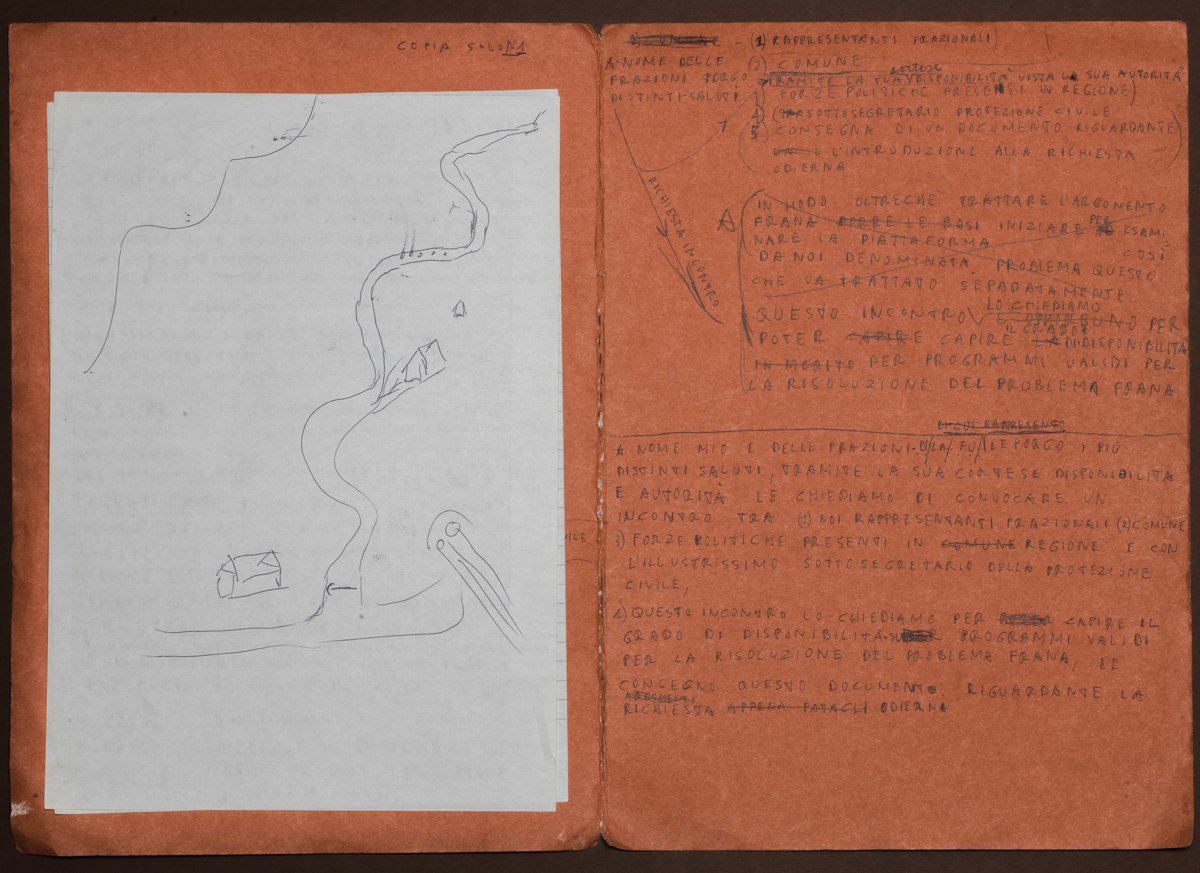 COPIA SOLO N1
(1) RAPPRESENTANTI FRAZIONALI)
A NOME DELLE
FRAZIONI PORGO
DISTINTI SALUTI
(2) COMUNE
CORTESE
TRAMITE LA SUA DISPONIBILITÀ VISTA LA SUA AUTORITÀ
3) FORZE POLITICHE PRESENTI IN REGIONE)
4) SOTTOSEGRETARIO PROTEZIONE CIVILE
5 CONSEGNA DI UN DOCUMENTO RIGUARDANTE
L'INTRODUZIONE ALLA RICHIESTA
ODIERNA
RICHIESTA INCONTRO
A
IN MODO OLTRECHÈ TRATTARE L'ARGOMENTO
FRANA PORRE LE BASI INIZIARE PER ESAMI
NARE LA PIATTAFORMA COSÌ
DA NOI DENOMINATA PROBLEMA QUESTO
CHE VA TRATTATO SEPARATAMENTE
LO CHIEDIAMO
QUESTO INCONTRO PER
IL GRADO
POTER CAPIRE CAPIRE LA DI DISPONIBILITÀ
IN MERITO PER PROGRAMMI VALIDI PER
LA RISOLUZIONE DEL PROBLEMA FRANA
DI CUI RAPPRESENTO
A NOME MIO E DELLE FRAZIONI LE PORGO I PIÙ
DISTINTI SALUTI, TRAMITE LA SUA CORTESE DISPONIBILITA
E AUTORITÀ LE CHIEDIAMO DI CONVOCARE UN
INCONTRO TRA (1) NOI RAPPRESENTANTI FRAZIONALI (2) COMUNE
3) FORZE POLITICHE PRESENTI IN COMUNE REGIONE E CON
L'ILLUSTRISSIMO SOTTOSEGRETARIO DELLA PROTEZIONE
CIVILE,
4) QUESTO INCONTRO LO CHIEDIAMO PER CAPIRE IL
GRADO DI DISPONIBILITÀ PROGRAMMI VALIDI
PER LA RISOLUZIONE DEL PROBLEMA FRANA, LE
CONSEGNO QUESTO DOCUMENTO RIGUARDANTE LA
ARGOMENTI
RICHIESTA APPENA ODIERNA